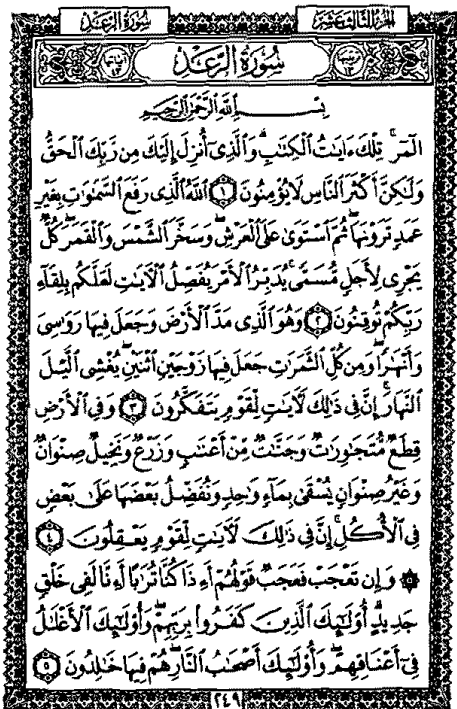 الجزء الثالث عشر سورة الرعد
سورة الرعد
بِسْمِ اللَّهِ الرَّحْمَٰنِ الرَّحِيمِ
الٓمٓرۚ تِلۡكَ ءَايَٰتُ ٱلۡكِتَٰبِۗ وَٱلَّذِيٓ أُنزِلَ إِلَيۡكَ مِن رَّبِّكَ ٱلۡحَقُّ
وَلَٰكِنَّ أَكۡثَرَ ٱلنَّاسِ لَا يُؤۡمِنُونَ ١ ٱللَّهُ ٱلَّذِي رَفَعَ ٱلسَّمَٰوَٰتِ بِغَيۡرِ
عَمَدٖ تَرَوۡنَهَاۖ ثُمَّ ٱسۡتَوَىٰ عَلَى ٱلۡعَرۡشِۖ وَسَخَّرَ ٱلشَّمۡسَ وَٱلۡقَمَرَۖ كُلّٞ
يَجۡرِي لِأَجَلٖ مُّسَمّٗىۚ يُدَبِّرُ ٱلۡأَمۡرَ يُفَصِّلُ ٱلۡأٓيَٰتِ لَعَلَّكُم بِلِقَآءِ
رَبِّكُمۡ تُوقِنُونَ ٢ وَهُوَ ٱلَّذِي مَدَّ ٱلۡأَرۡضَ وَجَعَلَ فِيهَا رَوَٰسِيَ
وَأَنۡهَٰرٗاۖ وَمِن كُلِّ ٱلثَّمَرَٰتِ جَعَلَ فِيهَا زَوۡجَيۡنِ ٱثۡنَيۡنِۖ يُغۡشِي ٱلَّيۡلَ
ٱلنَّهَارَۚ إِنَّ فِي ذَٰلِكَ لَأٓيَٰتٖ لِّقَوۡمٖ يَتَفَكَّرُونَ ٣ وَفِي ٱلۡأَرۡضِ
قِطَعٞ مُّتَجَٰوِرَٰتٞ وَجَنَّٰتٞ مِّنۡ أَعۡنَٰبٖ وَزَرۡعٞ وَنَخِيلٞ صِنۡوَانٞ
وَغَيۡرُ صِنۡوَانٖ يُسۡقَىٰ بِمَآءٖ وَٰحِدٖ وَنُفَضِّلُ بَعۡضَهَا عَلَىٰ بَعۡضٖ
فِي ٱلۡأُكُلِۚ إِنَّ فِي ذَٰلِكَ لَأٓيَٰتٖ لِّقَوۡمٖ يَعۡقِلُونَ ٤
۞ وَإِن تَعۡجَبۡ فَعَجَبٞ قَوۡلُهُمۡ أَءِذَا كُنَّا تُرَٰبًا أَءِنَّا لَفِي خَلۡقٖ
جَدِيدٍۗ أُوْلَٰٓئِكَ ٱلَّذِينَ كَفَرُواْ بِرَبِّهِمۡۖ وَأُوْلَٰٓئِكَ ٱلۡأَغۡلَٰلُ
فِيٓ أَعۡنَاقِهِمۡۖ وَأُوْلَٰٓئِكَ أَصۡحَٰبُ ٱلنَّارِۖ هُمۡ فِيهَا خَٰلِدُونَ ٥
٢٤٩